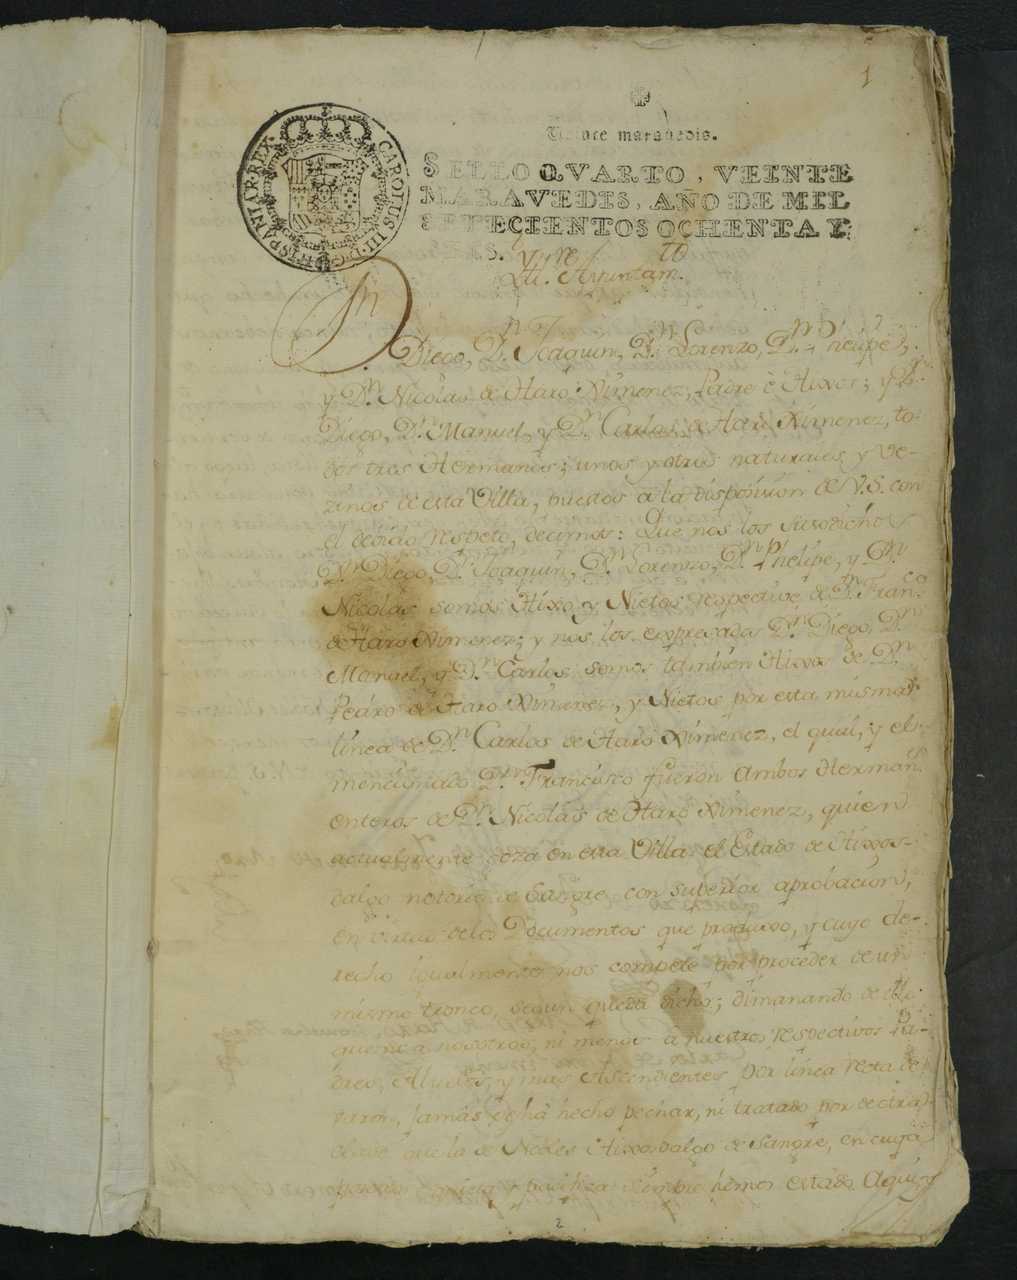 1
CAROLUS III D.G. HISPANIAR. REX
Veinte maravedis.
SELLO QVARTO, VEINTE
MARAVEDIS, AÑO DE MIL
SETECIENTOS OCHENTA Y
Ayuntam.to
Diego, D.n Joaquin, D.n Lorenzo, D.n Phelipe,
y D.n Nicolás de Haro Ximenez, Padre è Hixos; y D.n
Diego, D.n Manuel, y D.n Carlos de Haro Ximenez, to-
dos tres Hermanos; unos y otros naturales y ve-
zinos de esta Villa, puestos a la disposicion de V.S. con
el debido respeto, decimos: Que nos los susodichos
D.n Diego, D.n Joaquin, D.n Lorenzo, D.n Phelipe, y D.n
Nicolás somos Hixo y Nietos respective de D.n Fran.co
de Haro Ximenez; y nos los expresados D.n Diego, D.n
Manuel, y D.n Carlos somos tambien Hixos de D.n
Pedro de Haro Ximenez, y Nietos por esta misma
linea de D.n Carlos de Haro Ximenez, el qual, y el
mencionado D.n Francisco fueron ambos Herman.s
enteros de D.n Nicolás de Haro Ximenez, quien
actualmente goza en esta Villa el Estado de Hixos-
dalgo notorio de Sangre con superior aprobacion,
en virtud de los Documentos que produxo, y cuyo de-
recho igualmente nos compete por proceder de un
mismo tronco, segun queda dicho; dimanando de ello
que ni a nosotros, ni menos a nuestros respectivos Pa-
dres, Abuelos, y mas Ascendientes por linea recta de
varon, jamás se há hecho pechar, ni tratado por de otra
clase que la de Nobles Hixosdalgo de Sangre, en cuya
quieta y pacifica siempre hemos estado. Aqui, y
2